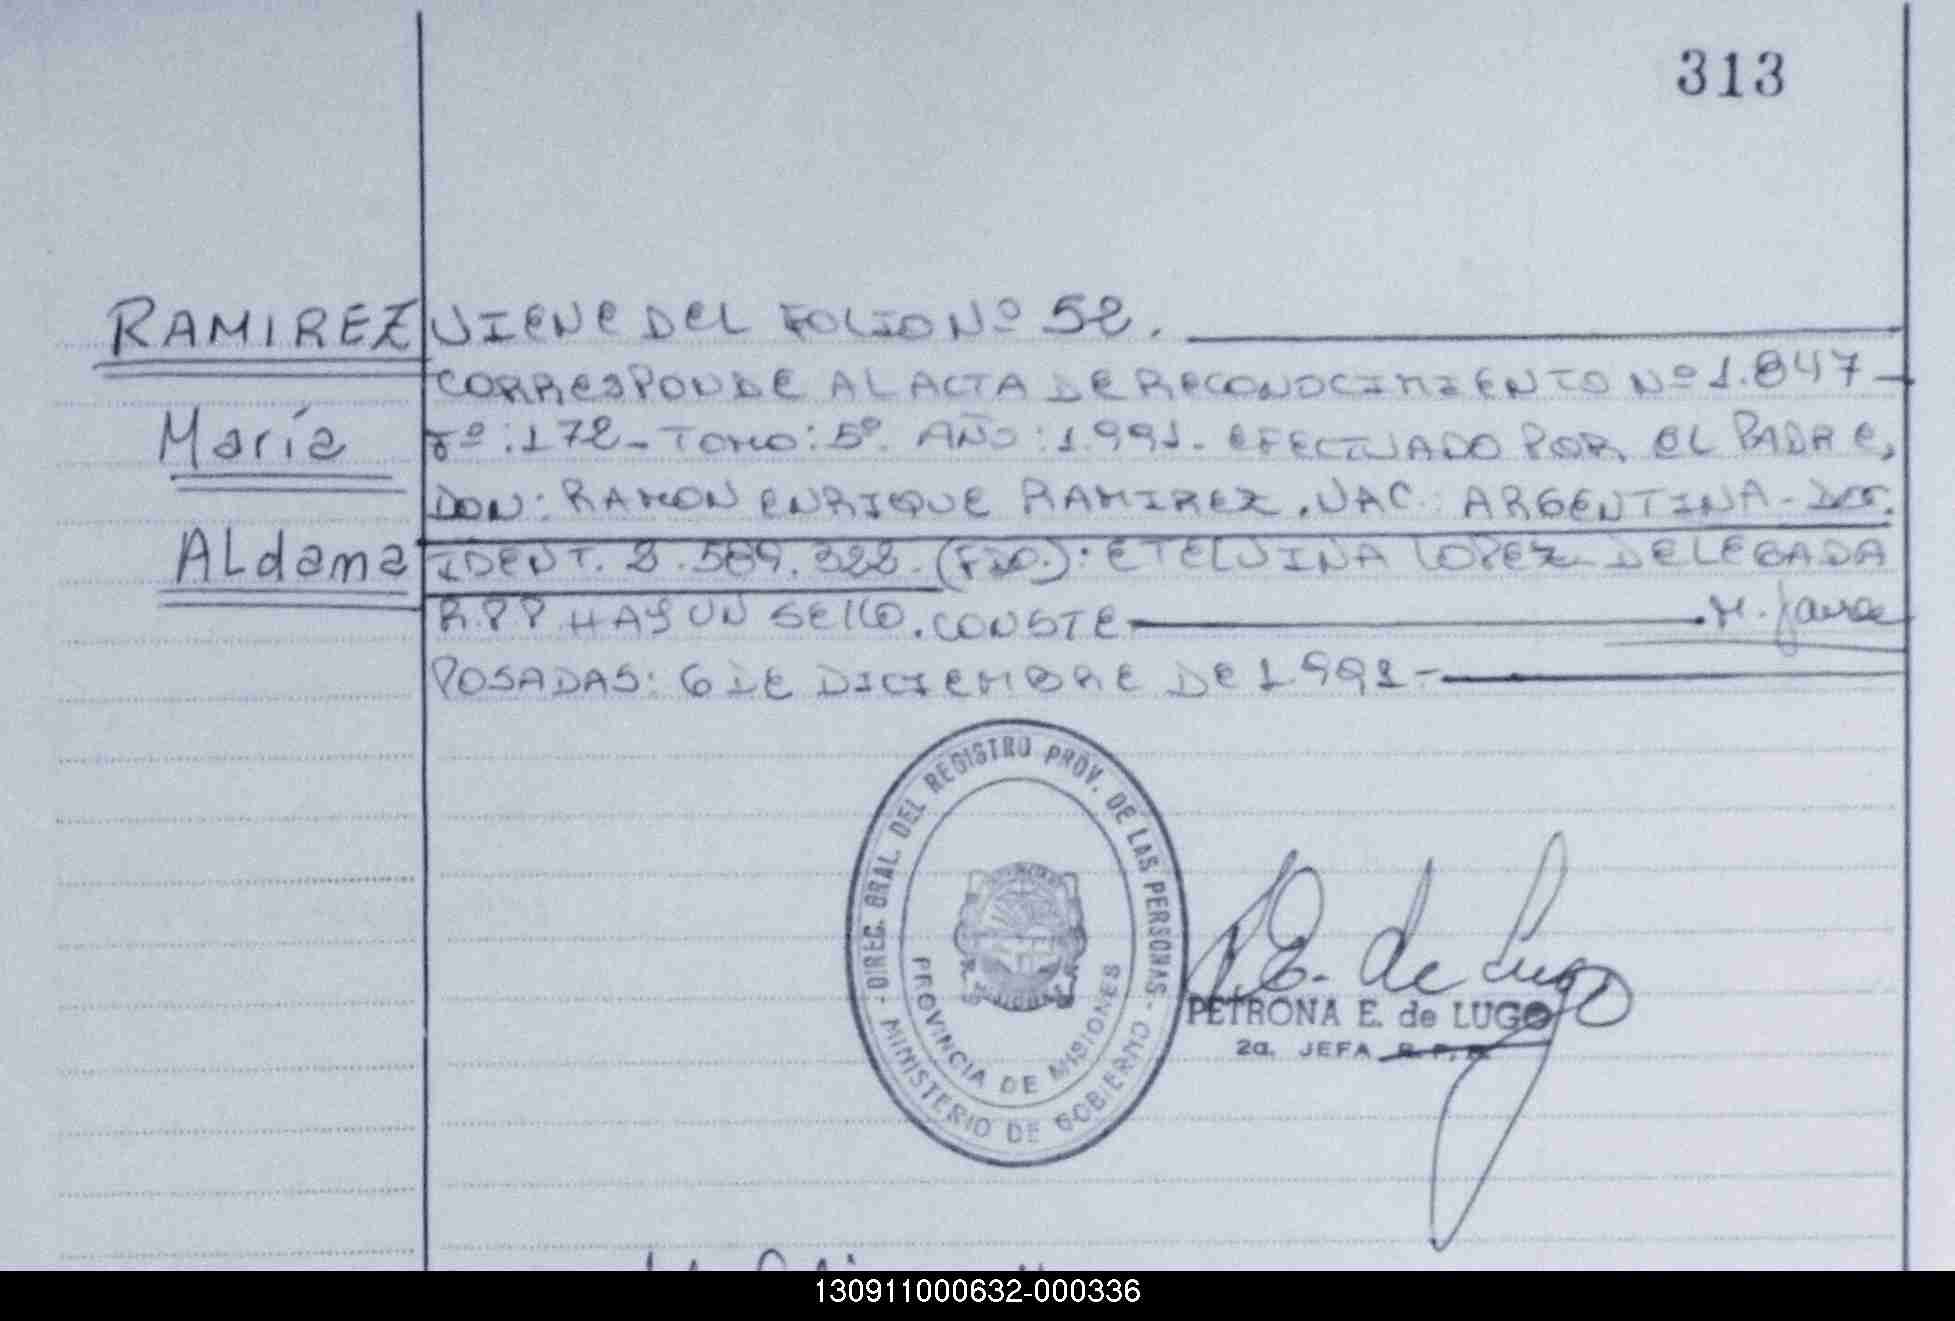 313
RAMIREZ
María
Aldama
VIENE DEL FOLIO Nº 52.
CORRESPONDE AL ACTA DE RECONOCIMIENTO Nº 1.847-
Fº:172- TOMO: 5º. AÑO: 1.991- EFECTUADO POR EL PADRE,
DON: RAMON ENRIQUE RAMIREZ. NAC. ARGENTINA-
IDENT. 2.589.322. (FDO.): ETELVINA LOPEZ DELEGADA
R.P.P. HAY UN SELLO. CONSTE
POSADAS: 6 DE DICIEMBRE DE 1991-
- DIREC. GRAL. DEL REGISTRO PROV. DE LAS PERSONAS -
MINISTERIO DE GOBIERNO
PROVINCIA DE MISIONES
P.E. de Lugo
PETRONA E. de LUGO
2a. JEFA R.P.P.
130911000632-000336